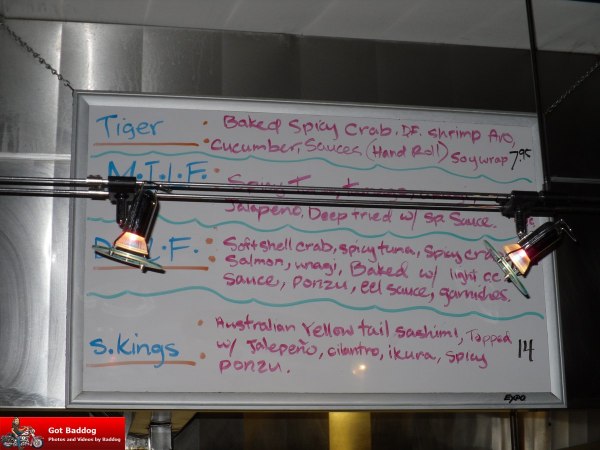 Tiger : Baked Spicy Crab, DF. shrimp Avo,
cucumber, Sauces (Hand Roll) Soywrap 7.95
M.I.L.F. :
Jalapeño, Deep fried w/ sp. Sauce.
Softshell crab, spicy tuna, spicy
Salmon, unagi, Baked w/ light
sauce, ponzu, eel sauce, garnishes.
s.kings : Australian Yellow tail sashimi, Topped
w/ Jalepeño, cilantro, ikura, spicy 14
ponzu.
EXPO
Got Baddog
Photos and Videos by Baddog